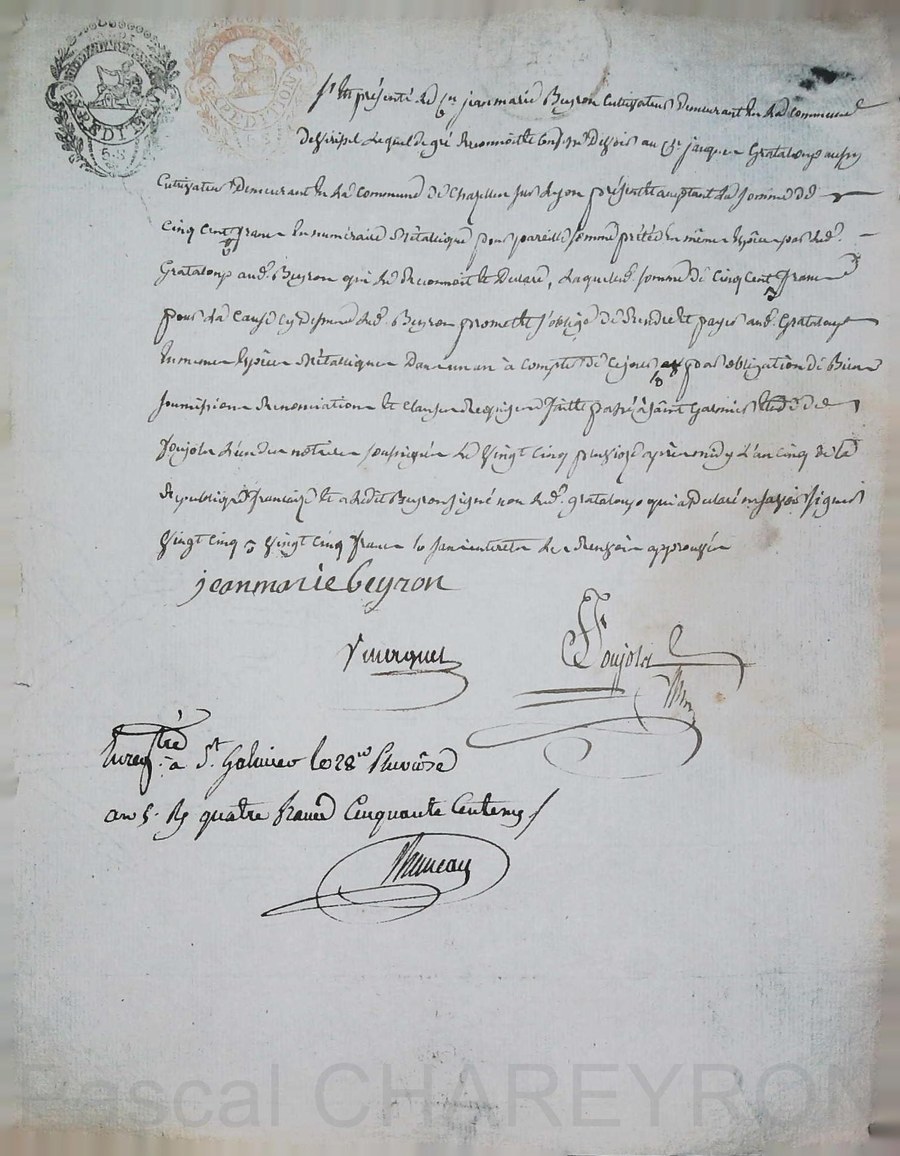 EXPEDITION
EXPEDITION
S'est présenté le Cn jean marie Beyron Cultivateur demeurant en la commune
lequel de gré reconnoit et confesse devoir au Cn jacques Grataloup aussy
Cultivateur demeurant en la commune de Chazelles sur Lyon présent et acceptant la somme de
Cinq Cent francs en numéraire métallique pour pareille somme prêtée en même espèce par led.
Grataloup aud. Beyron qui le reconnoit et déclare, laquelle somme de Cinq Cent francs
pour la cause cy dessus led. Beyron promet et s'oblige de rendre et payer aud. Grataloup
en même espèce métallique dans un an à compter de ce jour par obligation de Biens
soumissions renonciations et clauses requises fait et passé à Saint Galmier
Poujols l'un des notaires soussigné le Vingt Cinq pluviose après midy L'an cinq de la
République française et a ledit Beyron signé non led. grataloup qui a déclaré ne savoir signer
Vingt cinq Vingt cinq francs approuvés
jeanmarie beyron
Poujols
Enregtré à St. Galmier le 28 Pluviôse
an 5. R quatre francs Cinquante Centimes
Pascal CHAREYRON